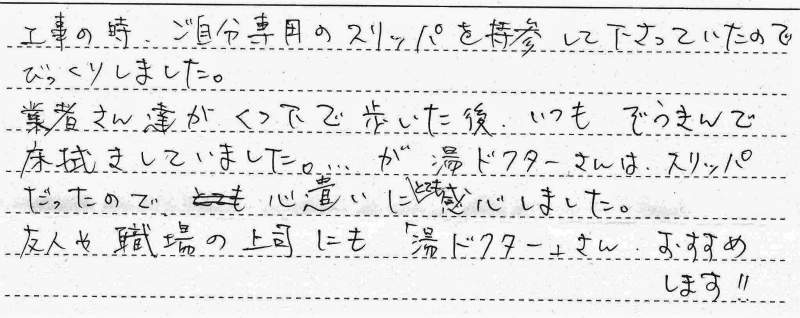 工事の時、ご自分専用のスリッパを持参して下さっていたので
びっくりしました。
業者さん達がくつ下で歩いた後、いつもぞうきんで
床拭きしていました。…が湯ドクターさんは、スリッパ
だったので、心遣いにとても感心しました。
友人や職場の上司にも「湯ドクター」さん、おすすめ
します!!